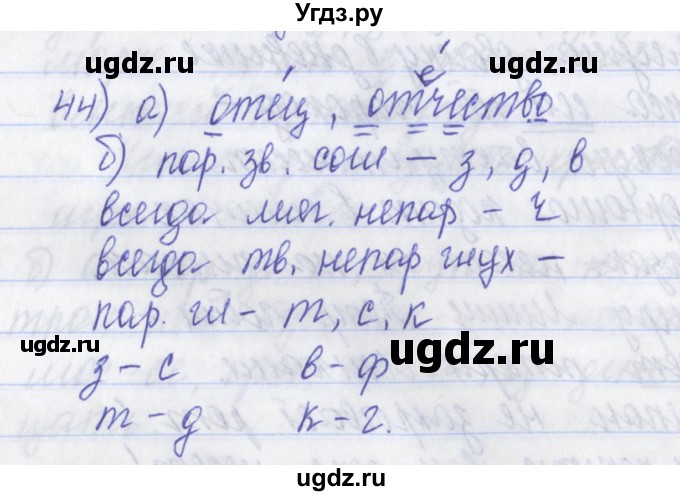 Угдз.ру
ugdz.ru ugdz.ru
44) а) отец, отечество
б) пар. зв. согл – з, д, в
всегда мяг. непар – ч
всегда тв. непар глух –
пар. гл – т, с, к
ugdz.ru ugdz.ru
з – с в – ф
т – д к – г.
ugdz.ru